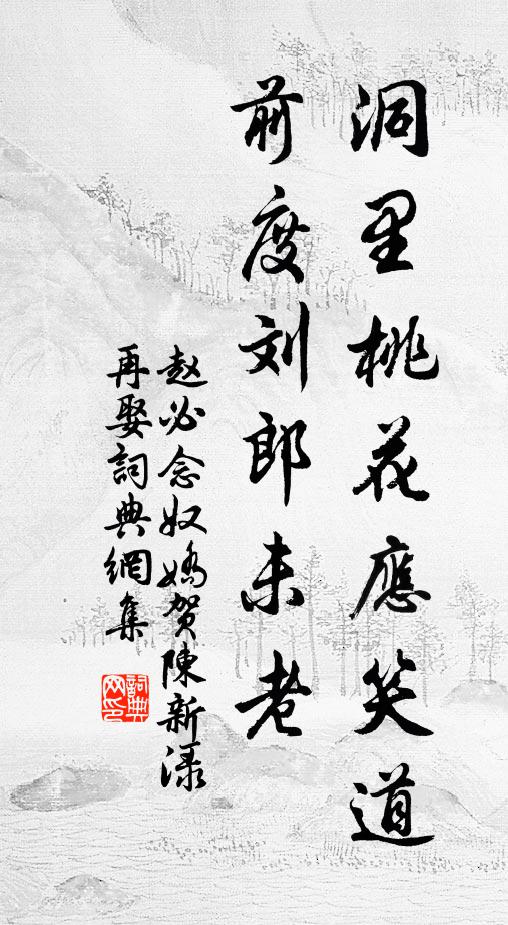 洞里桃花應笑道
前度刘郎未老
赵必念奴嬌賀陳新渌
再娶詞典網集
詞典網印